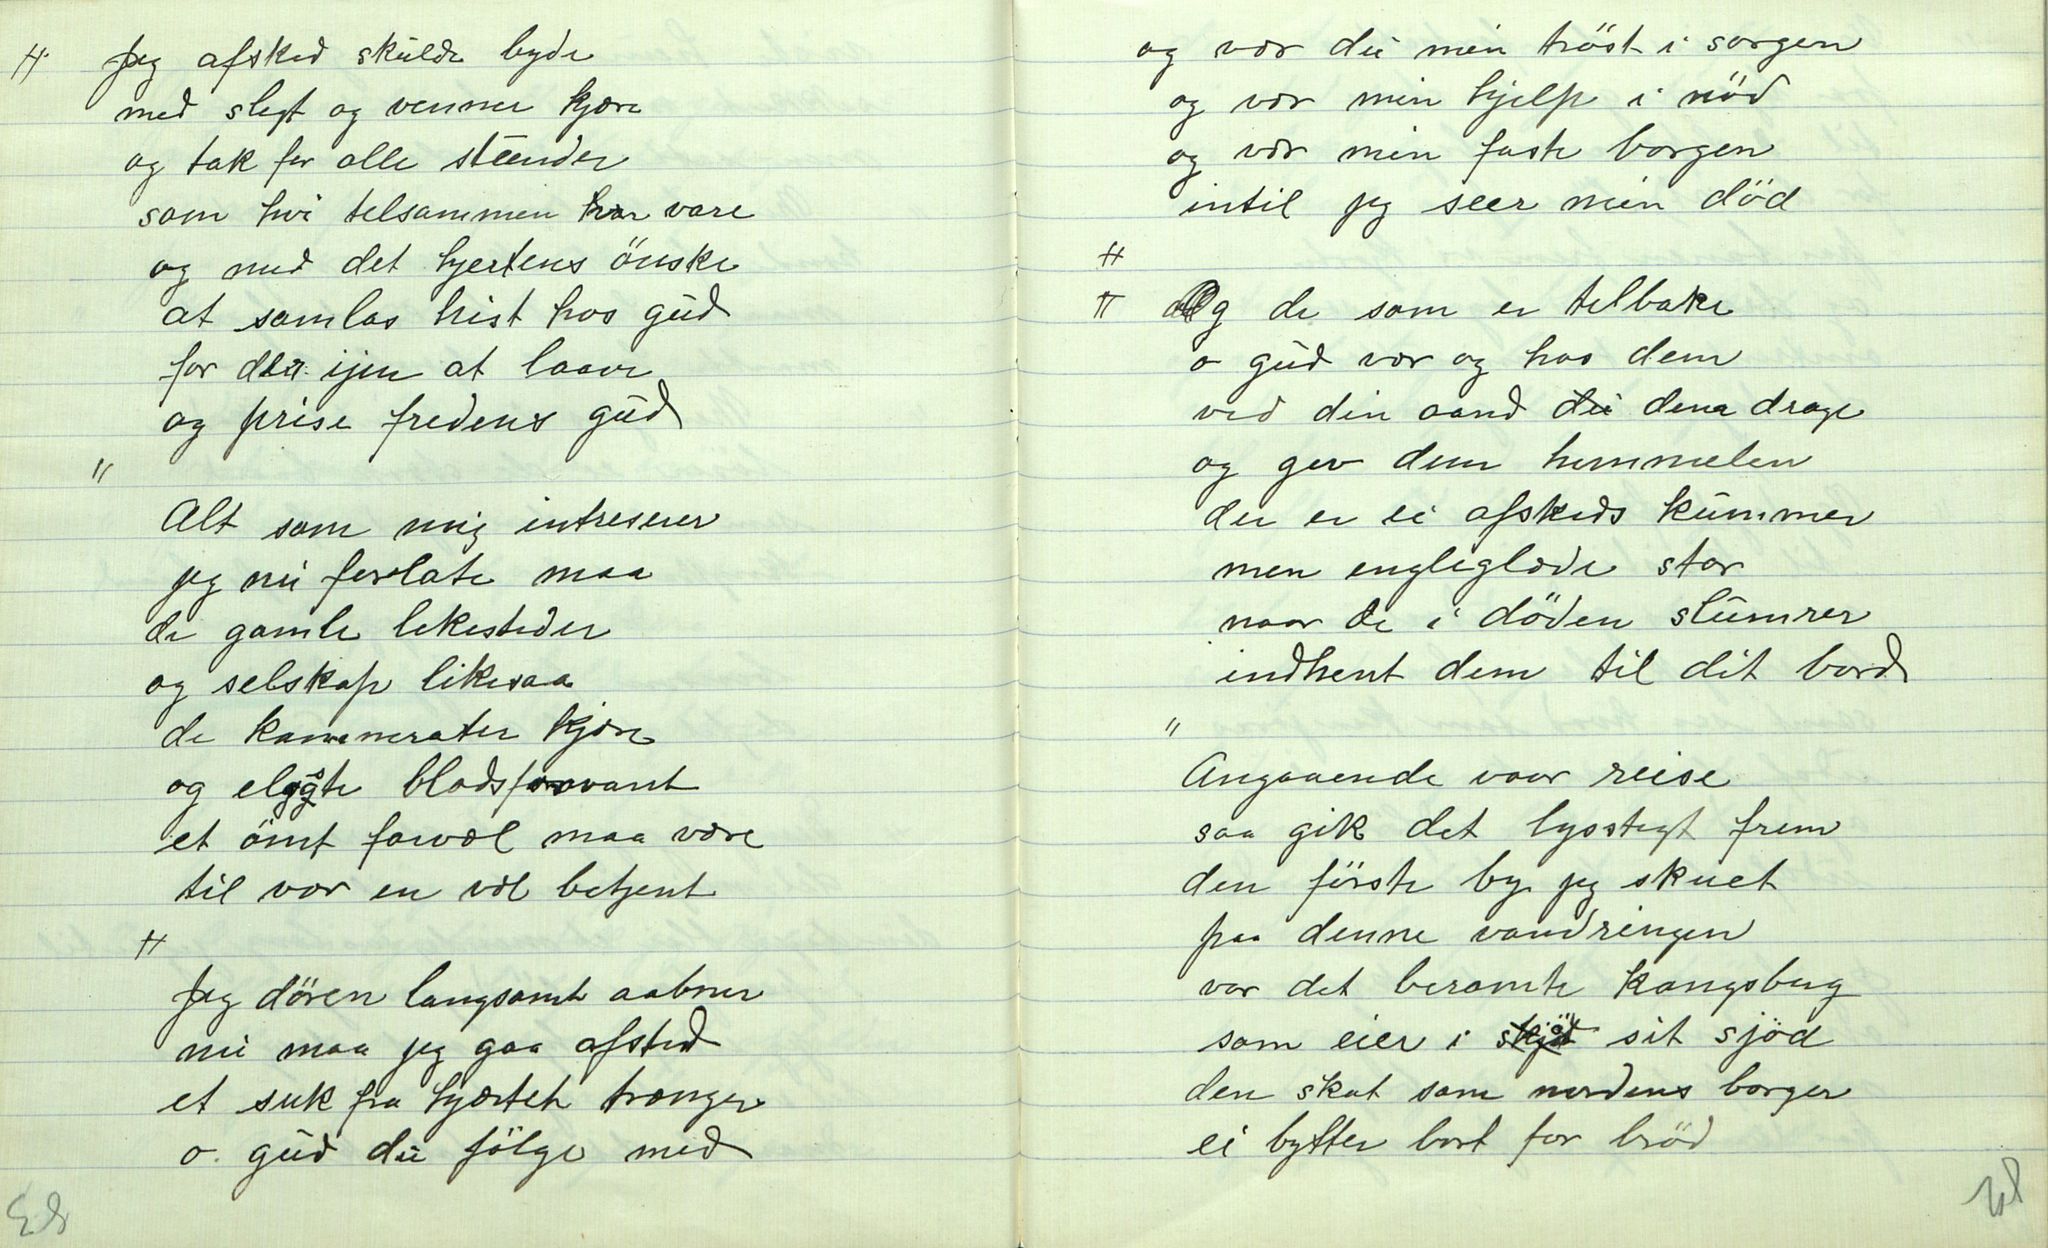 H Jeg afsked skulde byde
med slegt og venner kjære
og tak for alle stunder
som hvi telsammen har vare
og med det hjertens önske
at samlas hist hos gud
for der ijen at laave
og prise fredens gud
"
Alt som mig intreserer
jeg nu forlate maa
de gamle lekesteder
og selskap likesaa
de kammerater kjære
og elsgte blodsforvant
et ömt farvæl maa være
til vær en væl betjent
H
Jeg dören langsomt aabner
nu maa jeg gaa afsted
et suk fra hjærtet trænger
o gud du fölge med
og vær du min tröst i sorgen
og vær min hjelp i nöd
og vær min faste borgen
intil jeg seer min död
H
H Og de som er telbake
o gud vær og hos dem
ved din aand du dem drage
og gev dem hemmelen
der er ei afskeds kummer
men engleglæde stor
naar de i döden slumrer
indhent dem til dit bord
"
Angaaende vaar reise
saa gik det lysstegt frem
den förste by jeg skuet
paa denne vandringen
var det beromte Kongsberg
som eier i skjöd sit sjöd
den skat som nordens borger
ei bytter bort for bröd